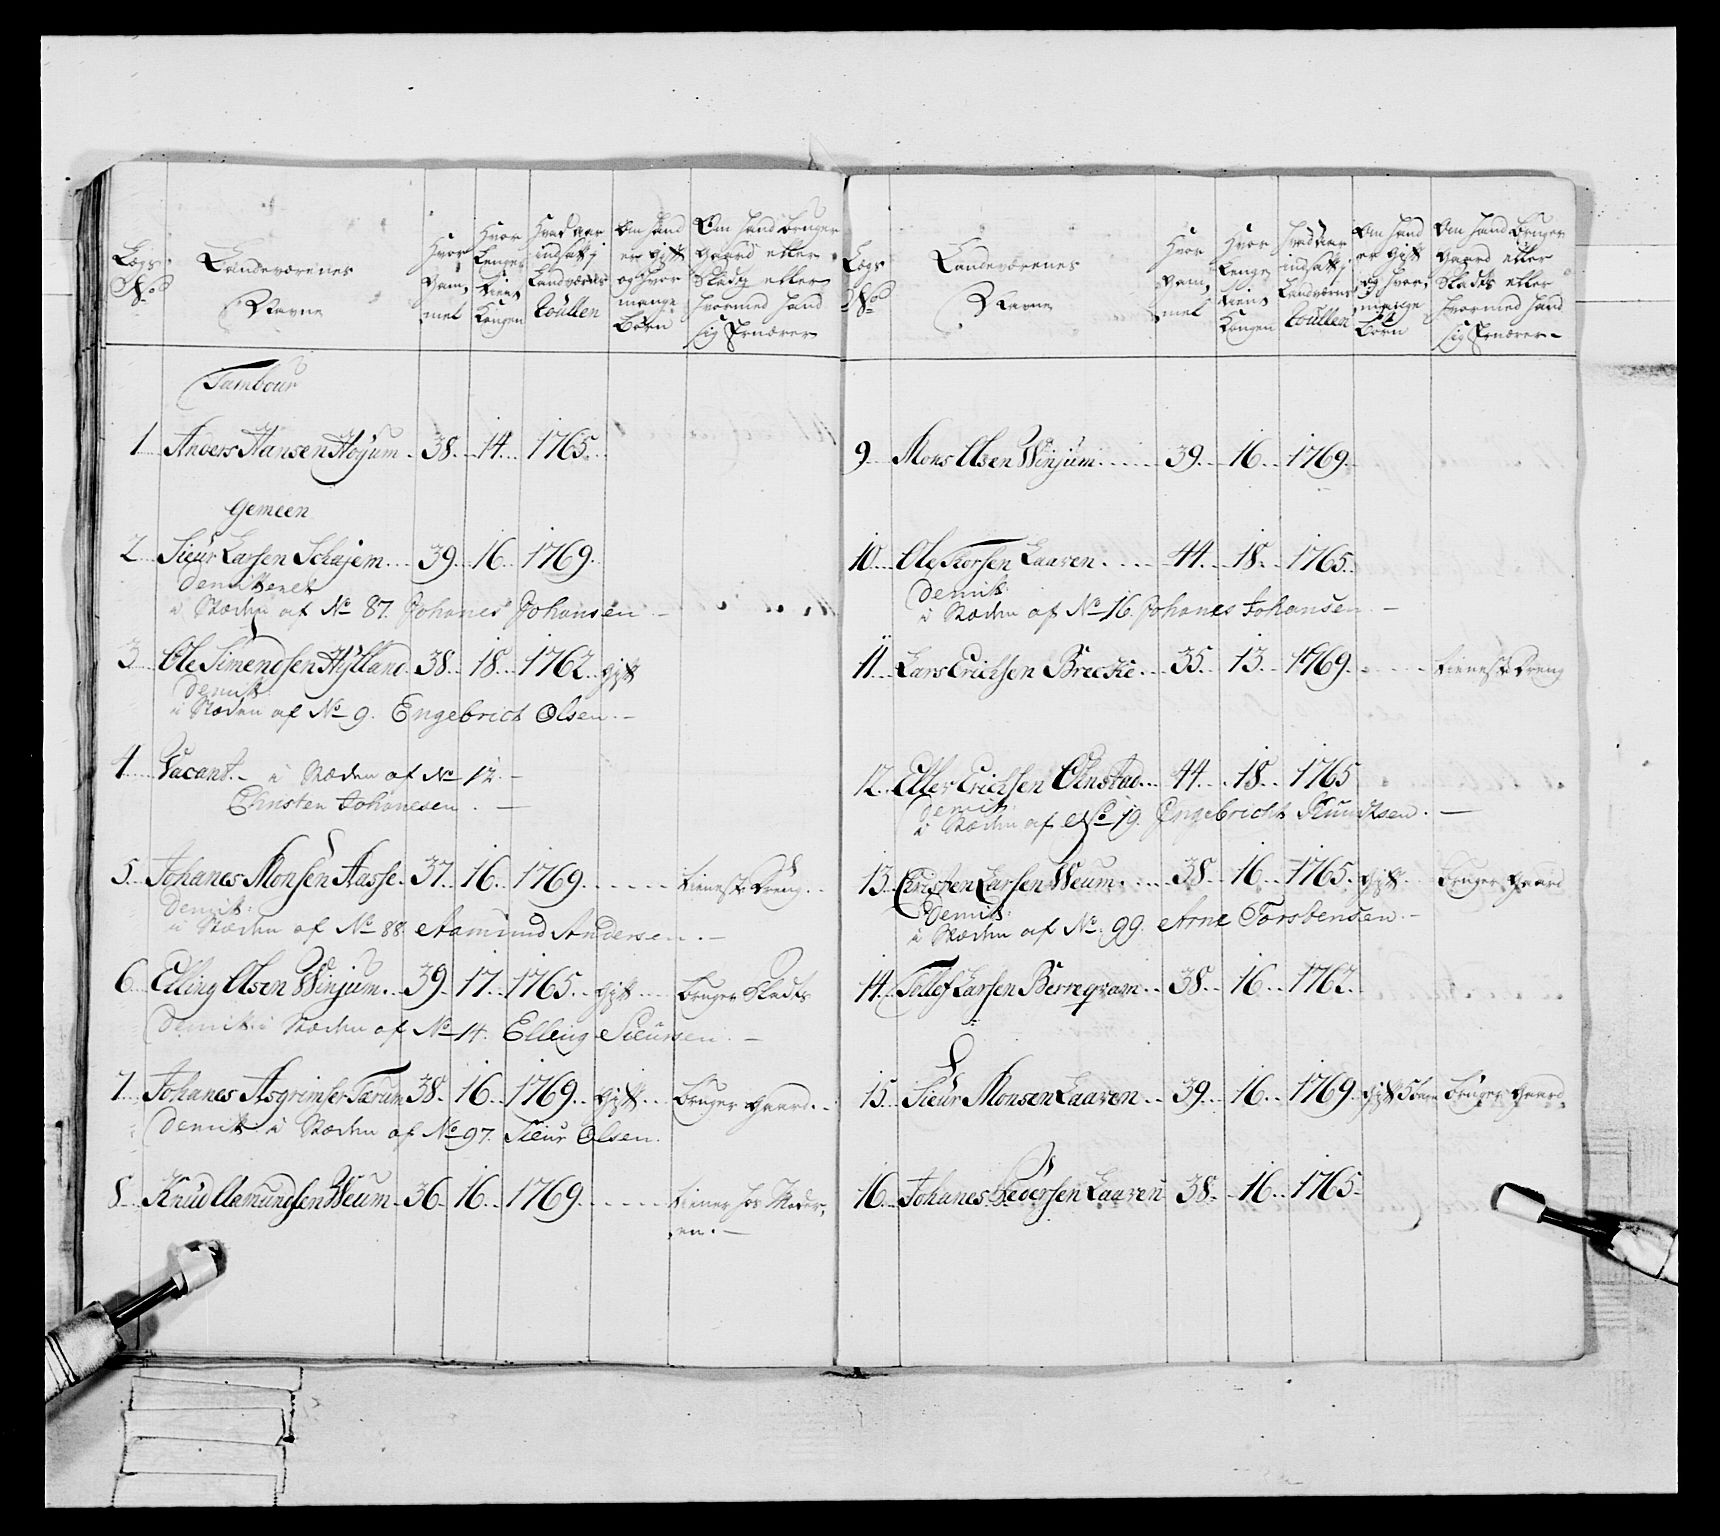 Lægs No
Landeværenes Navne
Hvor Gam, mel
Hvor Lenge tient Kongen
Hvad aar indsatt i Landværns Roullen
Om hand er gift og hvor mange Börn
Om hand bruger gaard eller Pladtz eller hvormed hand sig Ernærer
Tambour
1 Anders Hansen Høyum 38 14 1765
Gemeen
2 Sieur Larsen Schajem 39 16 1769
Demitteret
i Stæden af No 87. Johanes Johansen
3 Ole Simendsen Hylland 38 18 1762 gift
Demitt:
i Stæden af No 9. Engebrict Olsen
4 Vacant. i Stæden af No 12.
Christen Johanesen
5 Johanes Monsen Aasse 37 16 1769 tieneste Dreng
Demit:
i Stæden af No 88 Aamund Andersen
6 Elling Olsen Winjum 39 17 1765 gift bruger Pladts
Demit: i Stæden af No 14. Elling Sieursen
7 Johanes Asgrimsen Tærum 38 16 1769 gift bruger gaard
Demitt i Stæden af No 97. Sieur Olsen
8 Knud Aamundsen Weum 36 16 1769 tiener hos Moder, en.
Lægs No
Landeværenes Navne
Hvor Gam, mel
Hvor Lenge tient Kongen
Hvad aar indsatt i Landværns Roullen
Om hand er gift og hvor mange Börn
Om hand bruger gaard eller Pladts eller hvormed hand sig Ernærer
9 Mons Olsen Winjum 39 16 1769
10 Ole Torsen Laaven 44 18 1765
Demit:
i Stæden af No 16. Johanes Johansen
11 Lars Erichsen Brecke 35 13 1769 tieneste Dreng
12 Eller Erichsen Ønstad 44 18 1765
Demit:
i Stæden af No 19. Engebricht Knudtsen
13 Christen Larsen Weum 38 16 1765 gift bruger gaard
Demit:
i Stæden af No 99. Arne Torsbensen
14 Tollef Larsen Berregvam 38 16 1762
15 Sieur Monsen Laaven 39 16 1769 gift 5 børn bruger gaard
16 Johanes Pedersen Laaven 38 16 1765